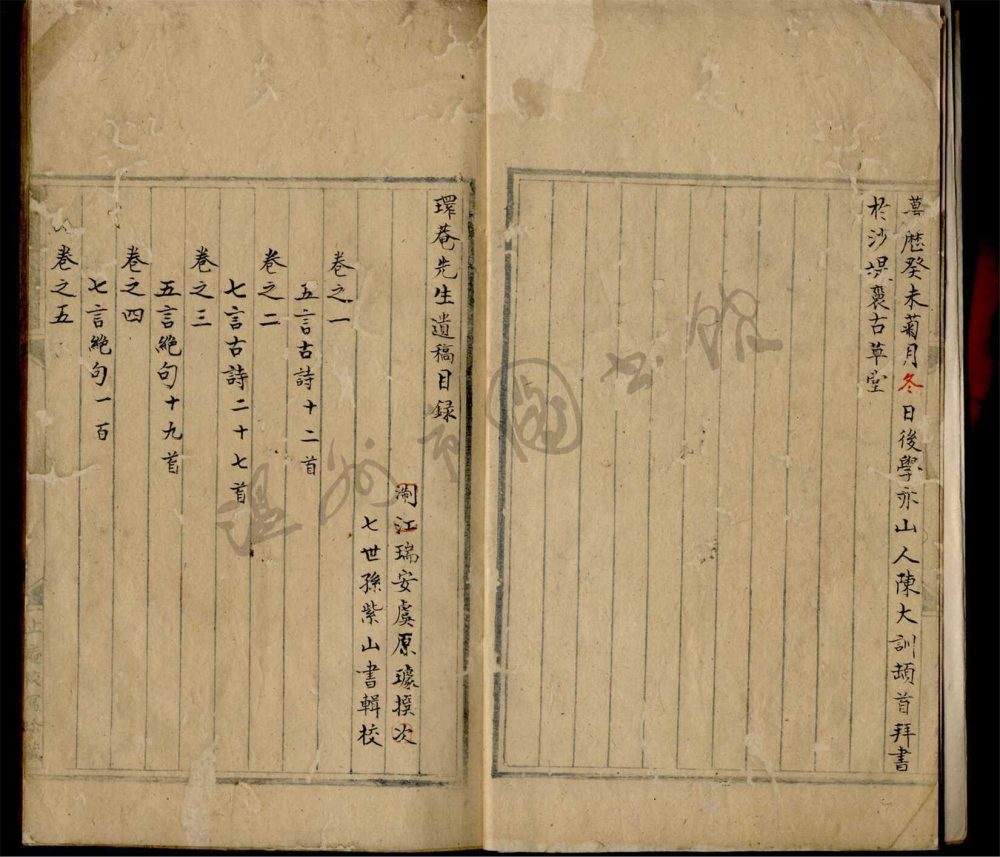 萬歷癸未菊月冬日後學亦山人陳大訓頓首拜書
於沙褱古草堂
環菴先生遺稿目録
淛江瑞安虞原璩撰次
七世孫紫山書輯校
卷之一
五言古詩十二首
卷之二
七言古詩二十七首
卷之三
五言絶句十九首
卷之四
七言絶句一百
卷之五
温州市圖書館